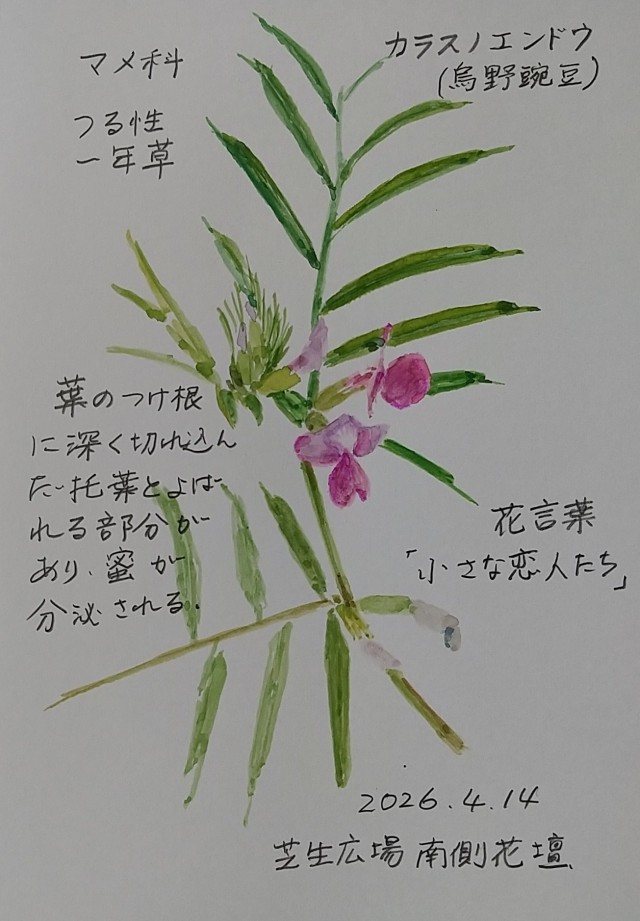 マメ科
つる性
一年草
カラスノエンドウ
(烏野豌豆)
葉のつけ根
に深く切れ込ん
だ托葉とよば
れる部分が
あり、蜜が
分泌される.
花言葉
「小さな恋人たち」
2026.4.14
芝生広場 南側花壇.